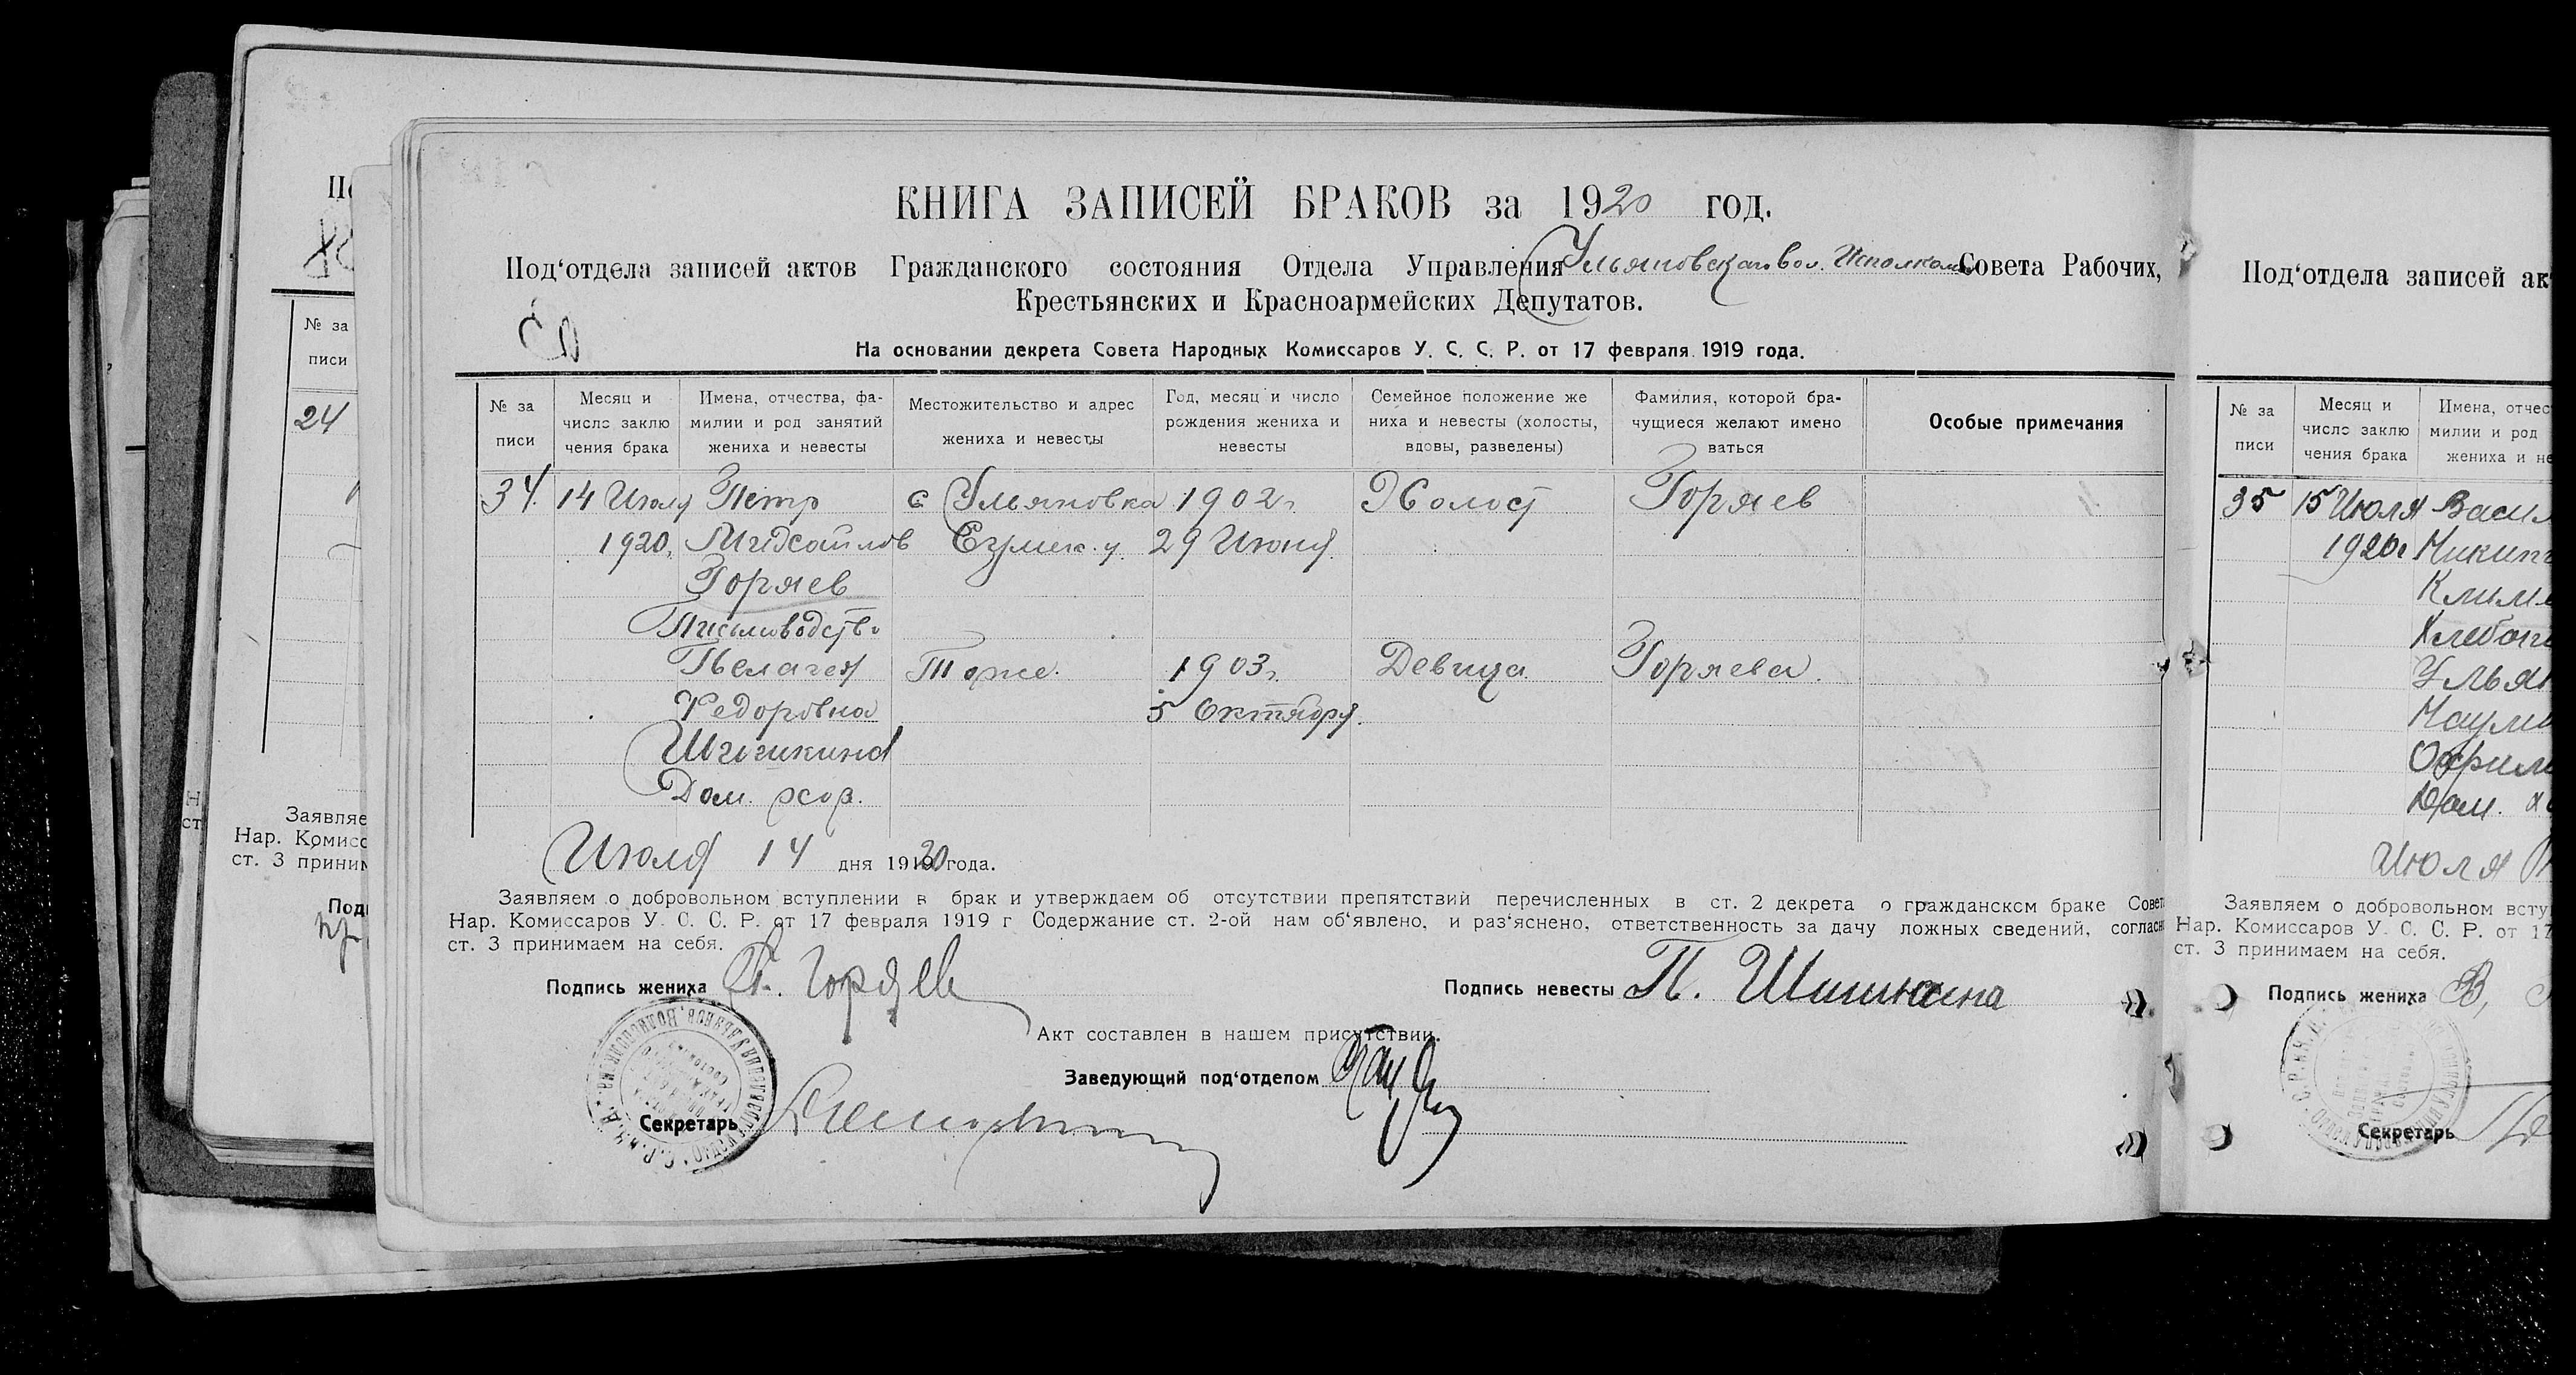 КНИГА ЗАПИСЕЙ БРАКОВ за 1920 год.
Под‘отдела записей актов Гражданского состояния Отдела Управления Ульяновскаго вол. Исполкома Совета Рабочих,
Крестьянских и Красноармейских Депутатов.
На основании декрета Совета Народных Комиссаров У. С. С. Р. от 17 февраля 1919 года.
№ за писи
Месяц и число заклю чения брака
Имена, отчества, фа- милии и род занятий жениха и невесты
Местожительство и адрес жениха и невесты
Год, месяц и число рождения жениха и невесты
Семейное положение же ниха и невесты (холосты, вдовы, разведены)
Фамилия, которой бра- чущиеся желают имено ваться
Особые примечания
34. 14 Июля Петр с Ульяновка 1902 г. Холост Горяев
1920, Михайлов 29 Июня
Горяев
Письмоводство
Пелагея Тоже. 1903 г. Девица Горяева.
Федоровна 5 Октября.
Шишкина
Дом. хоз.
Июля 14 дня 1920 года.
Заявляем о добровольном вступлении в брак и утверждаем об отсутствии препятствий перечисленных в ст. 2 декрета о гражданском браке Совета
Нар. Комиссаров У. С. С. Р. от 17 февраля 1919 г Содержание ст. 2-ой нам об‘явлено, и раз‘яснено, ответственность за дачу ложных сведений, согласно
ст. 3 принимаем на себя.
Подпись жениха П. Горяев
Подпись невесты П. Шишкина
Акт составлен в нашем присутствии.
Заведующий под‘отделом
Секретарь
№ за
писи
24
Заявляе
Нар. Комисс
ст. 3 приним
Под
Под‘отдела записей ак
№ за писи
Месяц и число заклю чения брака
Имена, отчес милии и род жениха и не
35 15 Июля Васил
1920 г Никит
Хлебоп
Ульян
Наум
Дом. х
Июля
Заявляем о добровольном всту
Нар. Комиссаров У. С. С. Р. от 17
ст. 3 принимаем на себя.
Подпись жениха В,
Секретарь